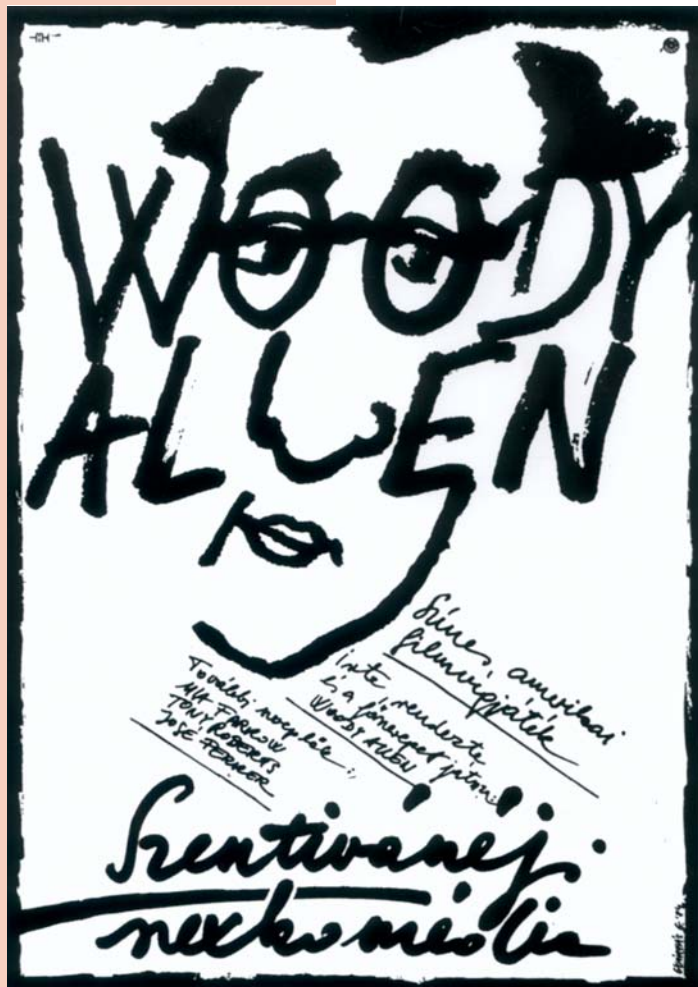 WOODY
ALLEN
Színes, amerikai
filmvígjáték
Írta, rendezte
és a főszerepet játssza:
WOODY ALLEN
További szereplők:
MIA FARROW
TONY ROBERTS
JOSE FERRER
Szentivánéji
szexkomédia